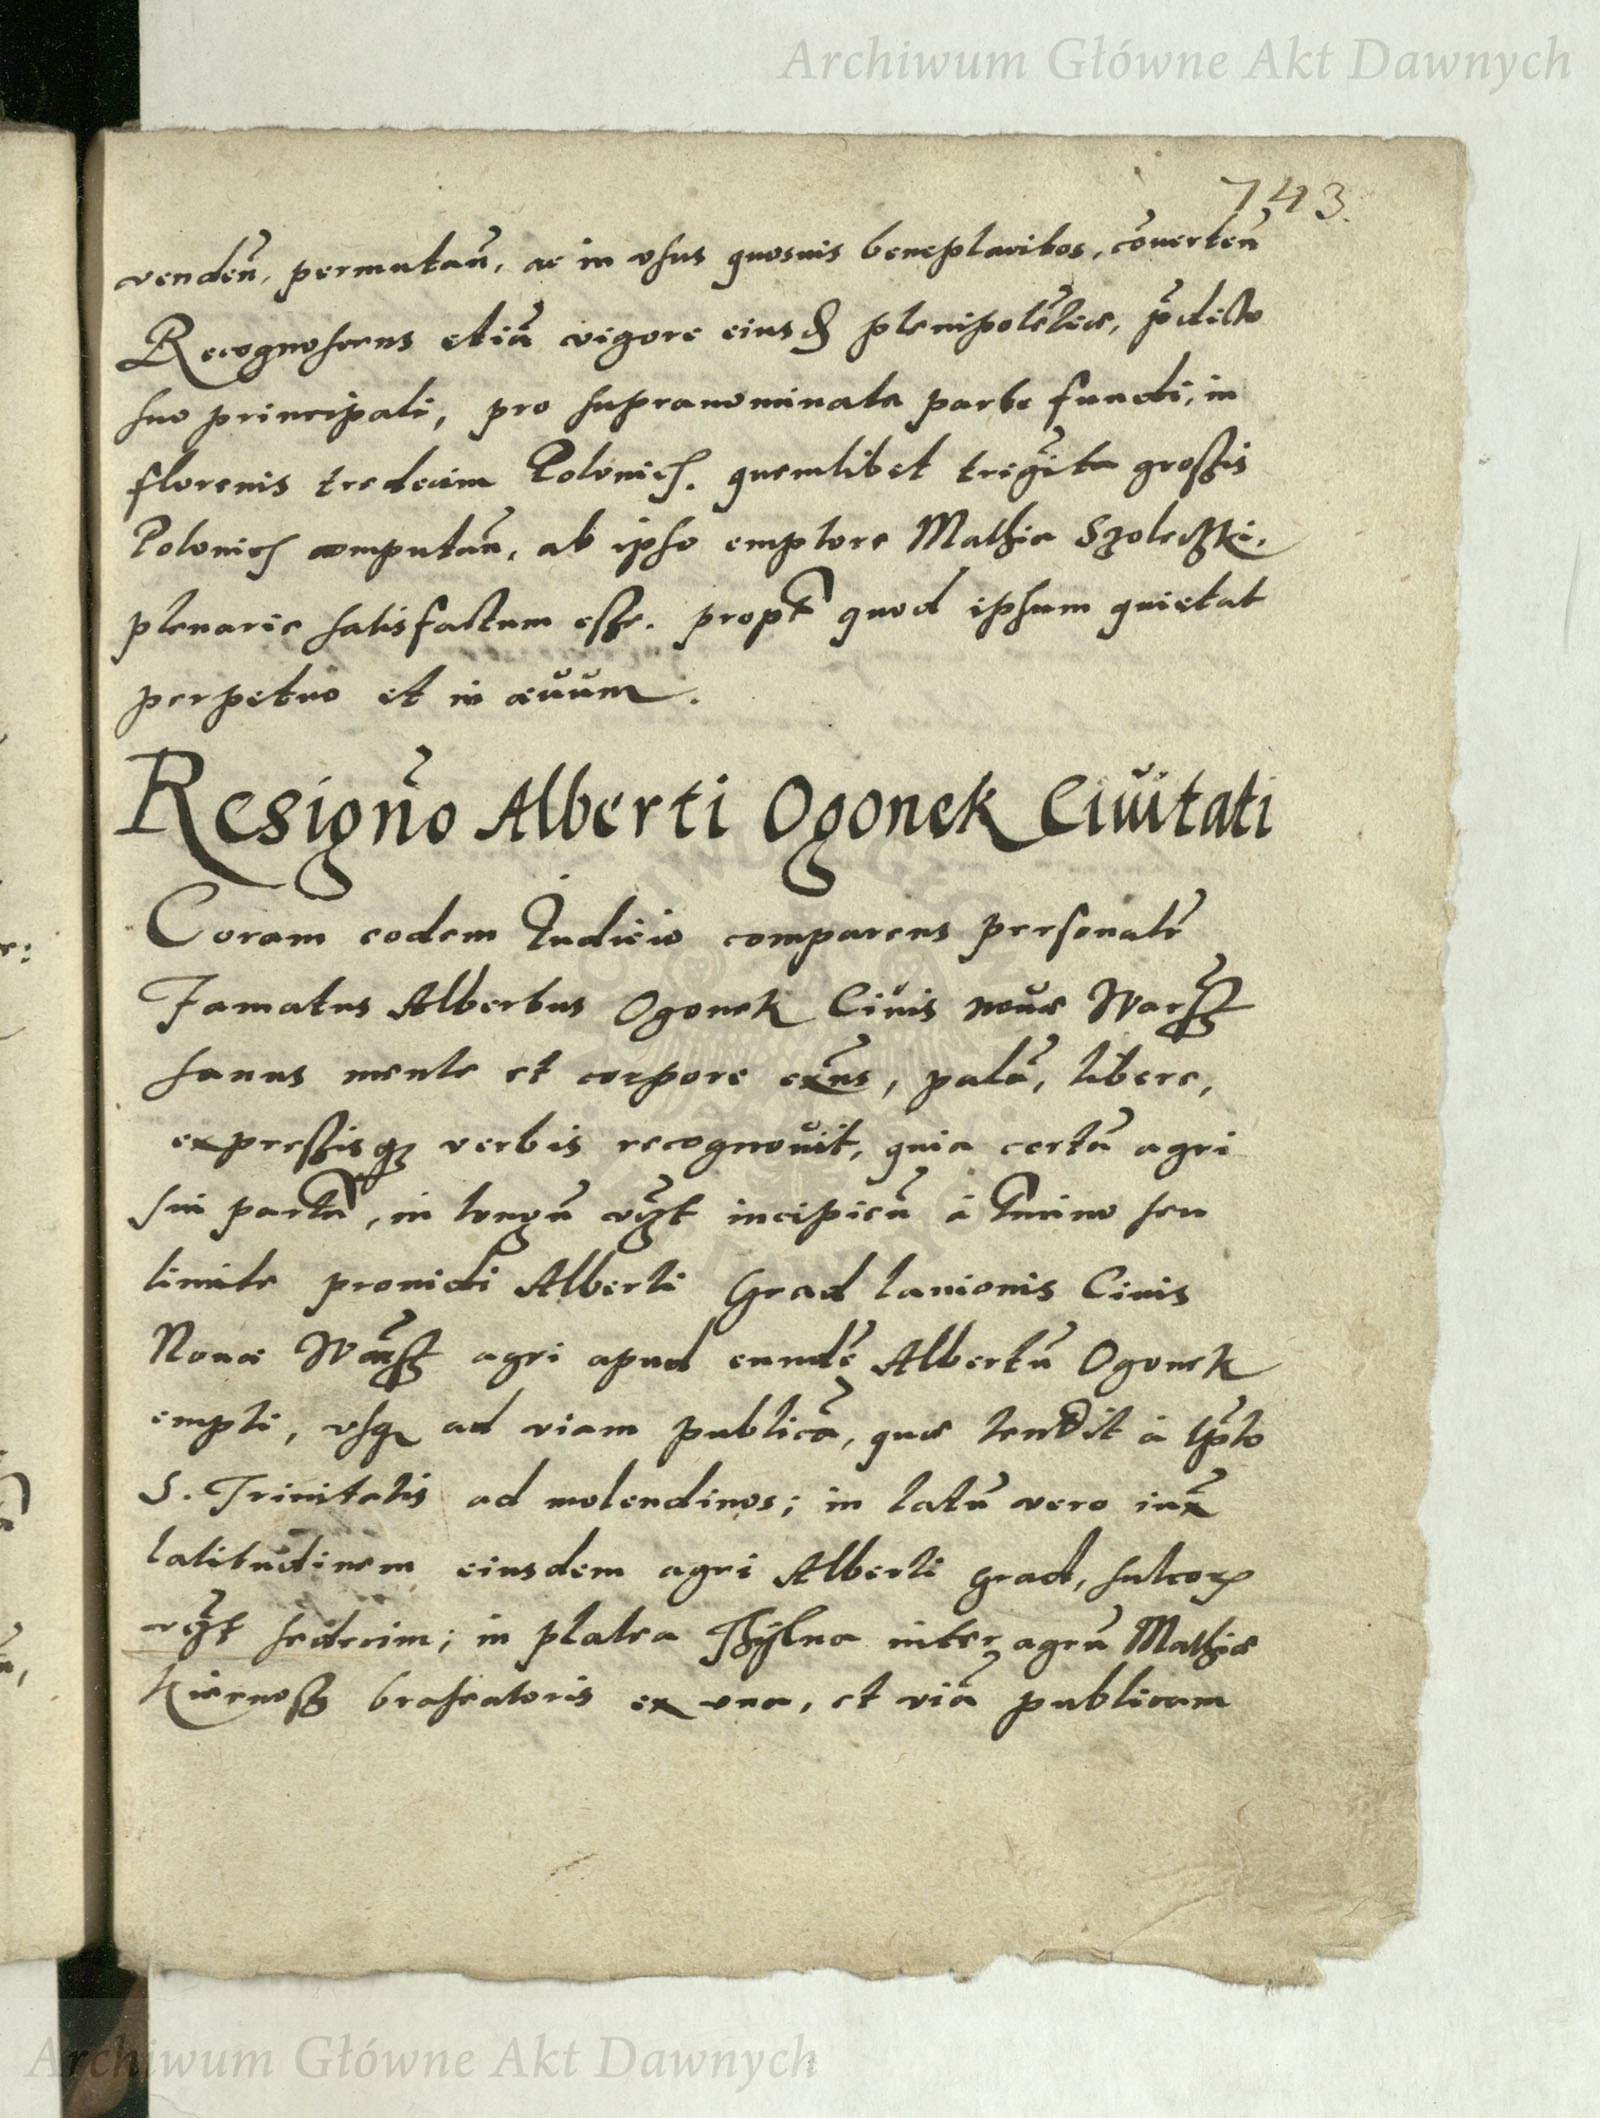 Archiwum Główne Akt Dawnych
743.
venden̄, permutan̄, ac in vsus quosuis beneplacitos, cōuerten̄
Recognoscens etiā vigore eiusd plenipotētiæ, p̄dicto
suo principali, pro supranominata parte fundi, in
florenis tredecim Polonich. quemlibet trigīta groszis
Polonich computan̄, ab ipso emptore Mathia
plenarie satisfactum esse. propt quod ipsum quietat
perpetuo et in ævum.
Resignō Alberti Ogonek Ciuitati
Coram eodem Iudicio comparens personalr̄
Famatus Albertus Ogonek Ciuis nouæ Warsz
sanus mente et corpore exn̄s, palā, libere,
expressisq verbis recognouit, quia certā agri
sui partē, in longū vꝫt incipien̄ à tmino seu
limite prouidi Alberti Grad lanionis Ciuis
Nouæ Warsz agri apud eundē Albertū Ogonek
empti, vsq ad viam publicā, quæ tendit à tp̄lo
S. Trinitatis ad molendinos; in latū vero iux̄
latitudinem eiusdem agri Alberti Grad, sulcoꝝ
vꝫt sedecim; in platea inter agrū Mathiæ
Kiernosz braseatoris ex vna, et viā publicam
Archiwum Główne Akt Dawnych